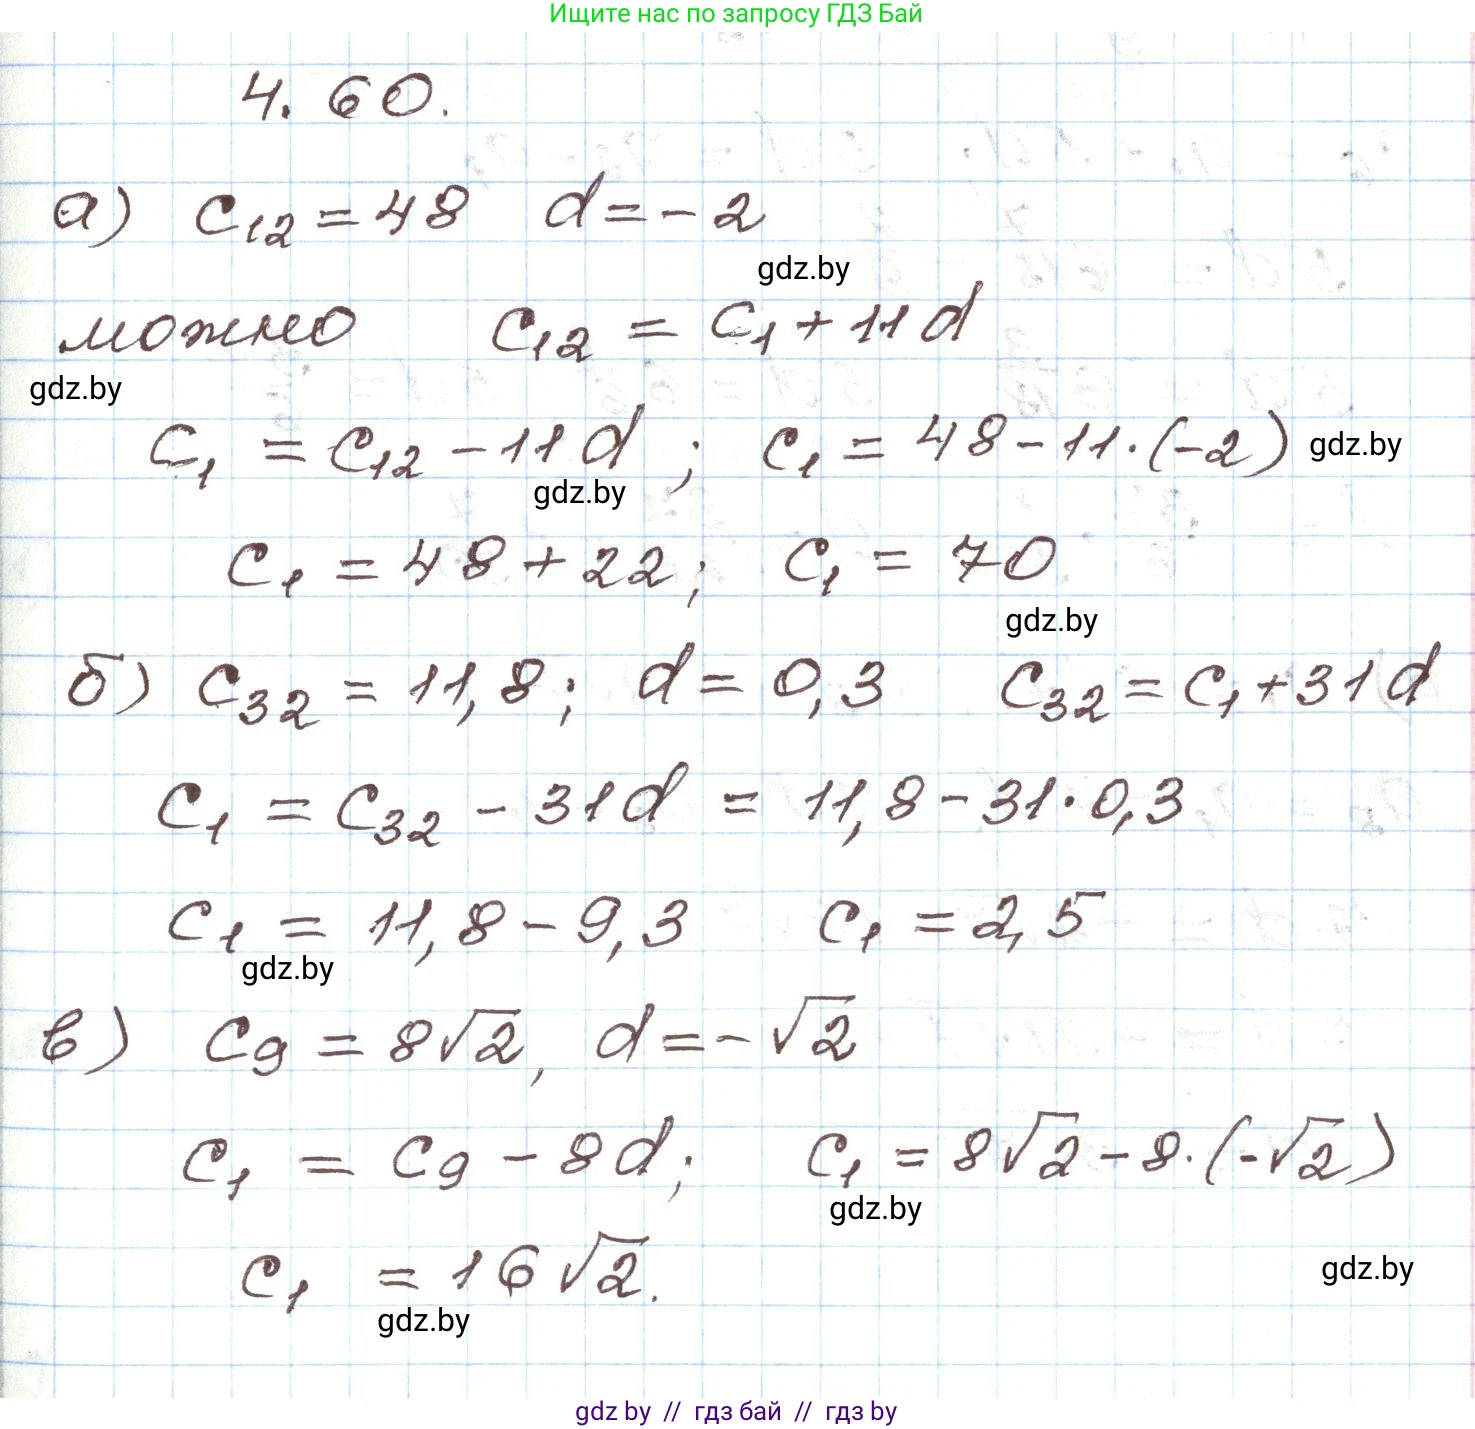 Ищите нас по запросу ГДЗ Бай
4.60.
а) c₁₂ = 48 d = -2
gdz.by
можно c₁₂ = c₁ + 11d
gdz.by
c₁ = c₁₂ - 11d ; c₁ = 48 - 11·(-2) gdz.by
gdz.by
c₁ = 48 + 22; c₁ = 70
gdz.by
б) c₃₂ = 11,8; d = 0,3 c₃₂ = c₁ + 31d
c₁ = c₃₂ - 31d = 11,8 - 31·0,3
c₁ = 11,8 - 9,3 c₁ = 2,5
gdz.by
в) c₉ = 8√2, d = -√2
c₁ = c₉ - 8d; c₁ = 8√2 - 8·(-√2)
gdz.by
c₁ = 16√2.
gdz.by
gdz.by
gdz by // гдз бай // гдз by